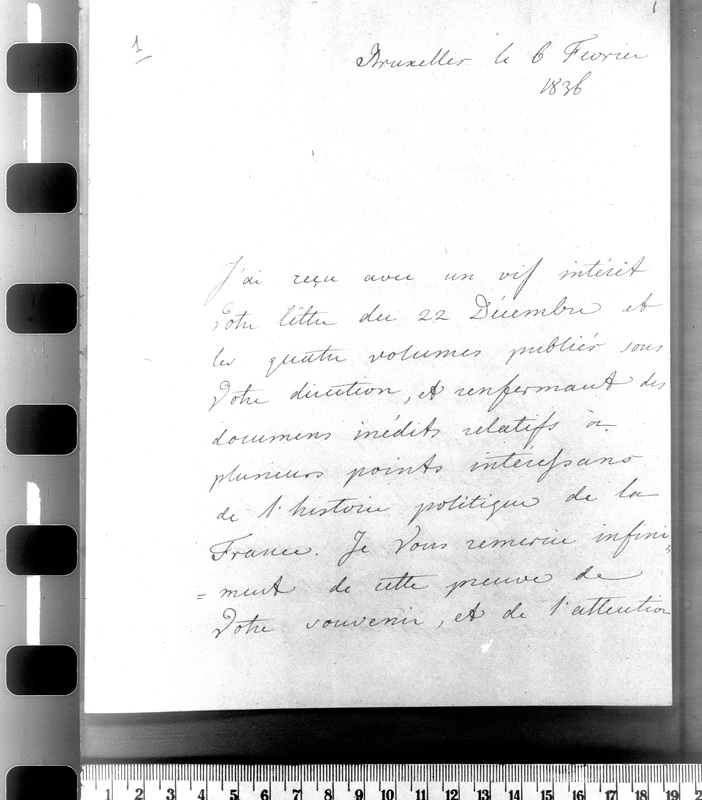 1
Bruxelles le 6 Fevrier
1836
J'ai reçu avec un vif intérêt
Votre lêttre du 22 Décembre et
les quatre volumes publiés sous
Votre direction, et renfermant des
documens inédits relatifs à
plusieurs points intéressans
de l'histoire politique de la
France. Je Vous remercie infini=
=ment de cette preuve de
Votre souvenir, et de l'attention
1 2 3 4 5 6 7 8 9 10 11 12 13 14 15 16 17 18 19 2